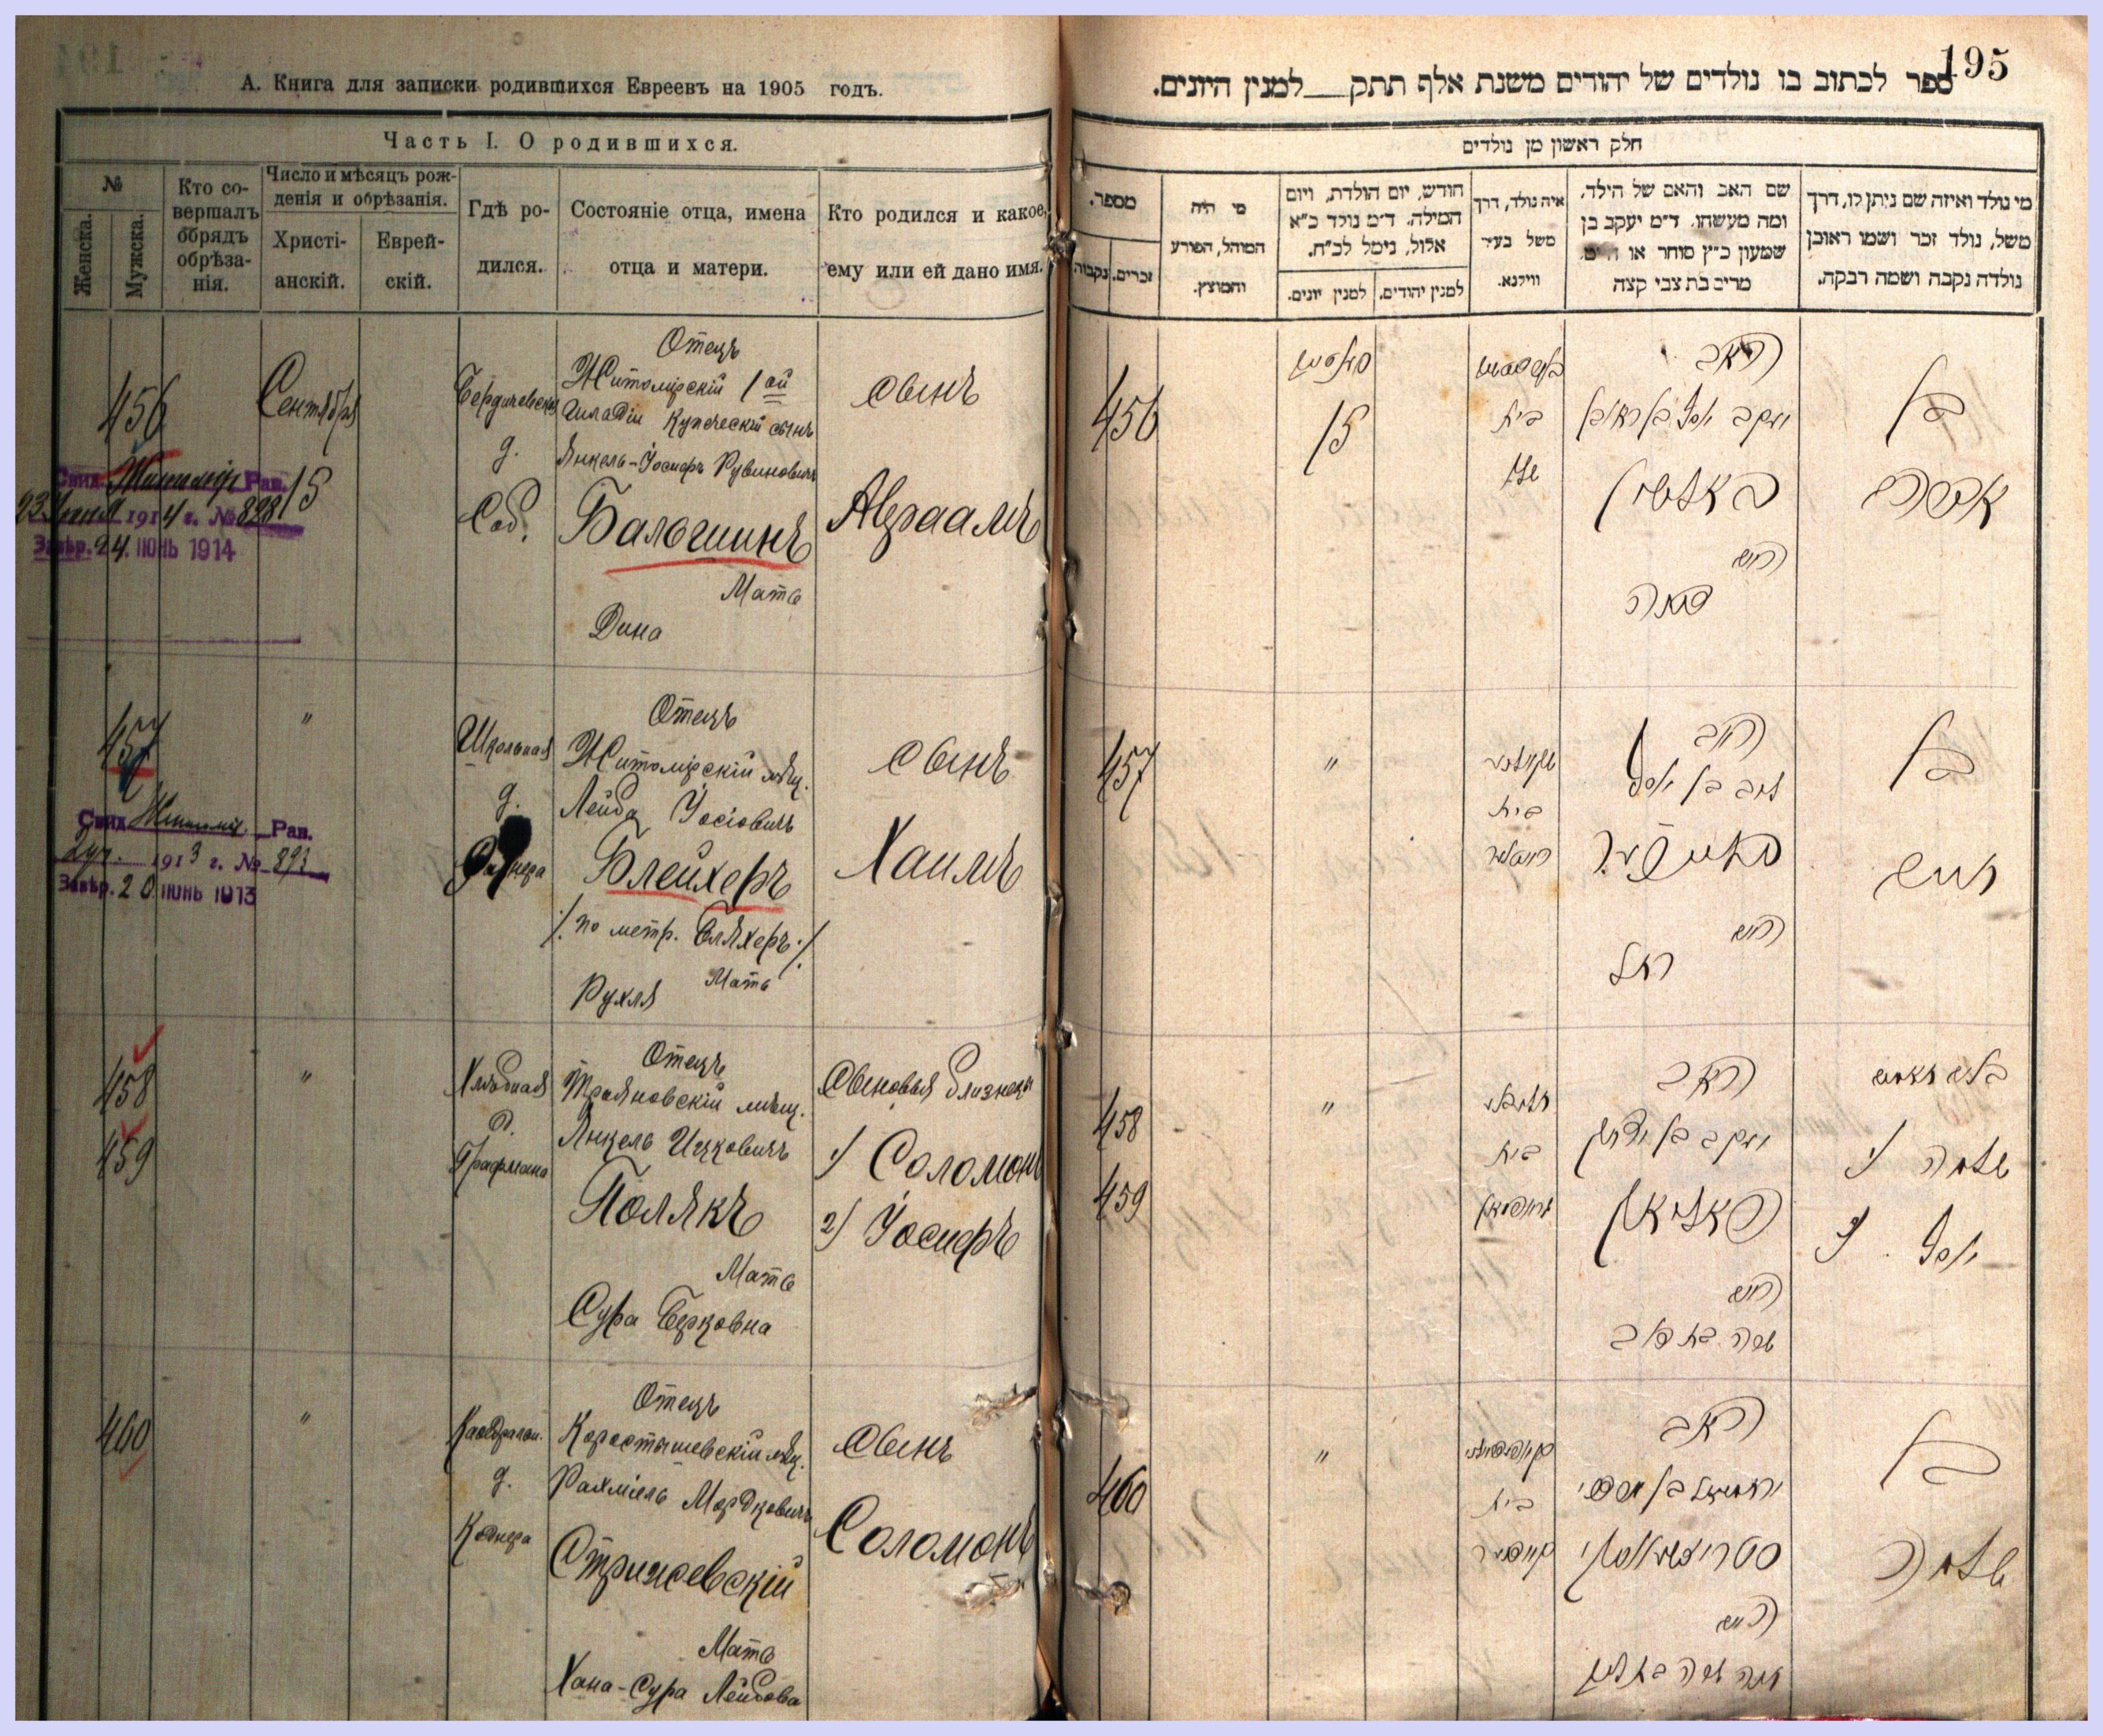 195
А. Книга для записки родившихся Евреевъ на 1905 годъ.
Часть I. О родившихся.
№
Женска.
Мужска.
Кто со-
вершалъ
обрядъ
обрѣза-
нія.
Число и мѣсяцъ рож-
денія и обрѣзанія.
Христі-
анскій.
Еврей-
скій.
Гдѣ ро-
дился.
Состояніе отца, имена
отца и матери.
Кто родился и какое,
ему или ей дано имя.
456
Сентября
15
Свид. Рав.
1914 г. № 898
Завѣр. 24 ІЮНЬ 1914
д.
Соб.
Отецъ
Житомірскій 1ой
гильдіи Купеческій сынъ
Янкель-Іосифъ Рувиновичъ
Бальшинъ
Мать
Дина
сынъ
Авраамъ
457
"
Свид. Рав.
1913 г. № 893
Завѣр. 20 ІЮНЬ 1913
Школьная
д.
Отецъ
Житомірскій мѣщ.
Лейба Іосіовичъ
Блейхеръ
/. по метр. Бляхеръ ./
Мать
Рухля
сынъ
Хаимъ
458
459
"
Хлѣбная
д.
Графмана
Отецъ
Трояновскій мѣщ.
Янкель Ицковичъ
Полякъ
Мать
Сура Берковна
Сыновья близнецы
1) Соломонъ
2) Іосифъ
460
"
д.
Коднера
Отецъ
Коростышевскій мѣщ.
Рахміель Мордковичъ
Стрижевскій
Мать
Хана-Сура Лейбова
сынъ
Соломонъ
ספר לכתוב בו נולדים של יהודים משנת אלף תתק__למנין היונים.
חלק ראשון מן נולדים
מי נולד ואיזה שם ניתן לו, דרך
משל, נולד זכר ושמו ראובן
נולדה נקבה ושמה רבקה.
שם האב והאם של הילד.
ומה מעשהו. ד״מ יעקב בן
שמעון כ״ץ סוחר או
מרים בת צבי קצה
איה נולד, דרך
משל בעיר
ווילנא.
חודש, יום הולדת, ויום
המילה. ד״מ נולד כ״א
אלול, נימל לכ״ח.
למנין יהודים.
למנין יונים.
מי היה
המוהל, הפורע
והמוצץ.
מספר.
זכרים.
נקבות.
456
15
בית
האב
יעקב יוסף בן ראובן
באלשין
האם
בן
אברהם
457
"
בית
האב
ליב בן יוסף
האם
רחל
בן
חיים
458
459
"
בית
האב
יעקב בן יצחק
פאליאק
האם
שרה בת בערב
שלמה
יוסף
460
"
בית
האב
ירחמיאל בן מרדכי
האם
חנה שרה בת ליב
בן
שלמה